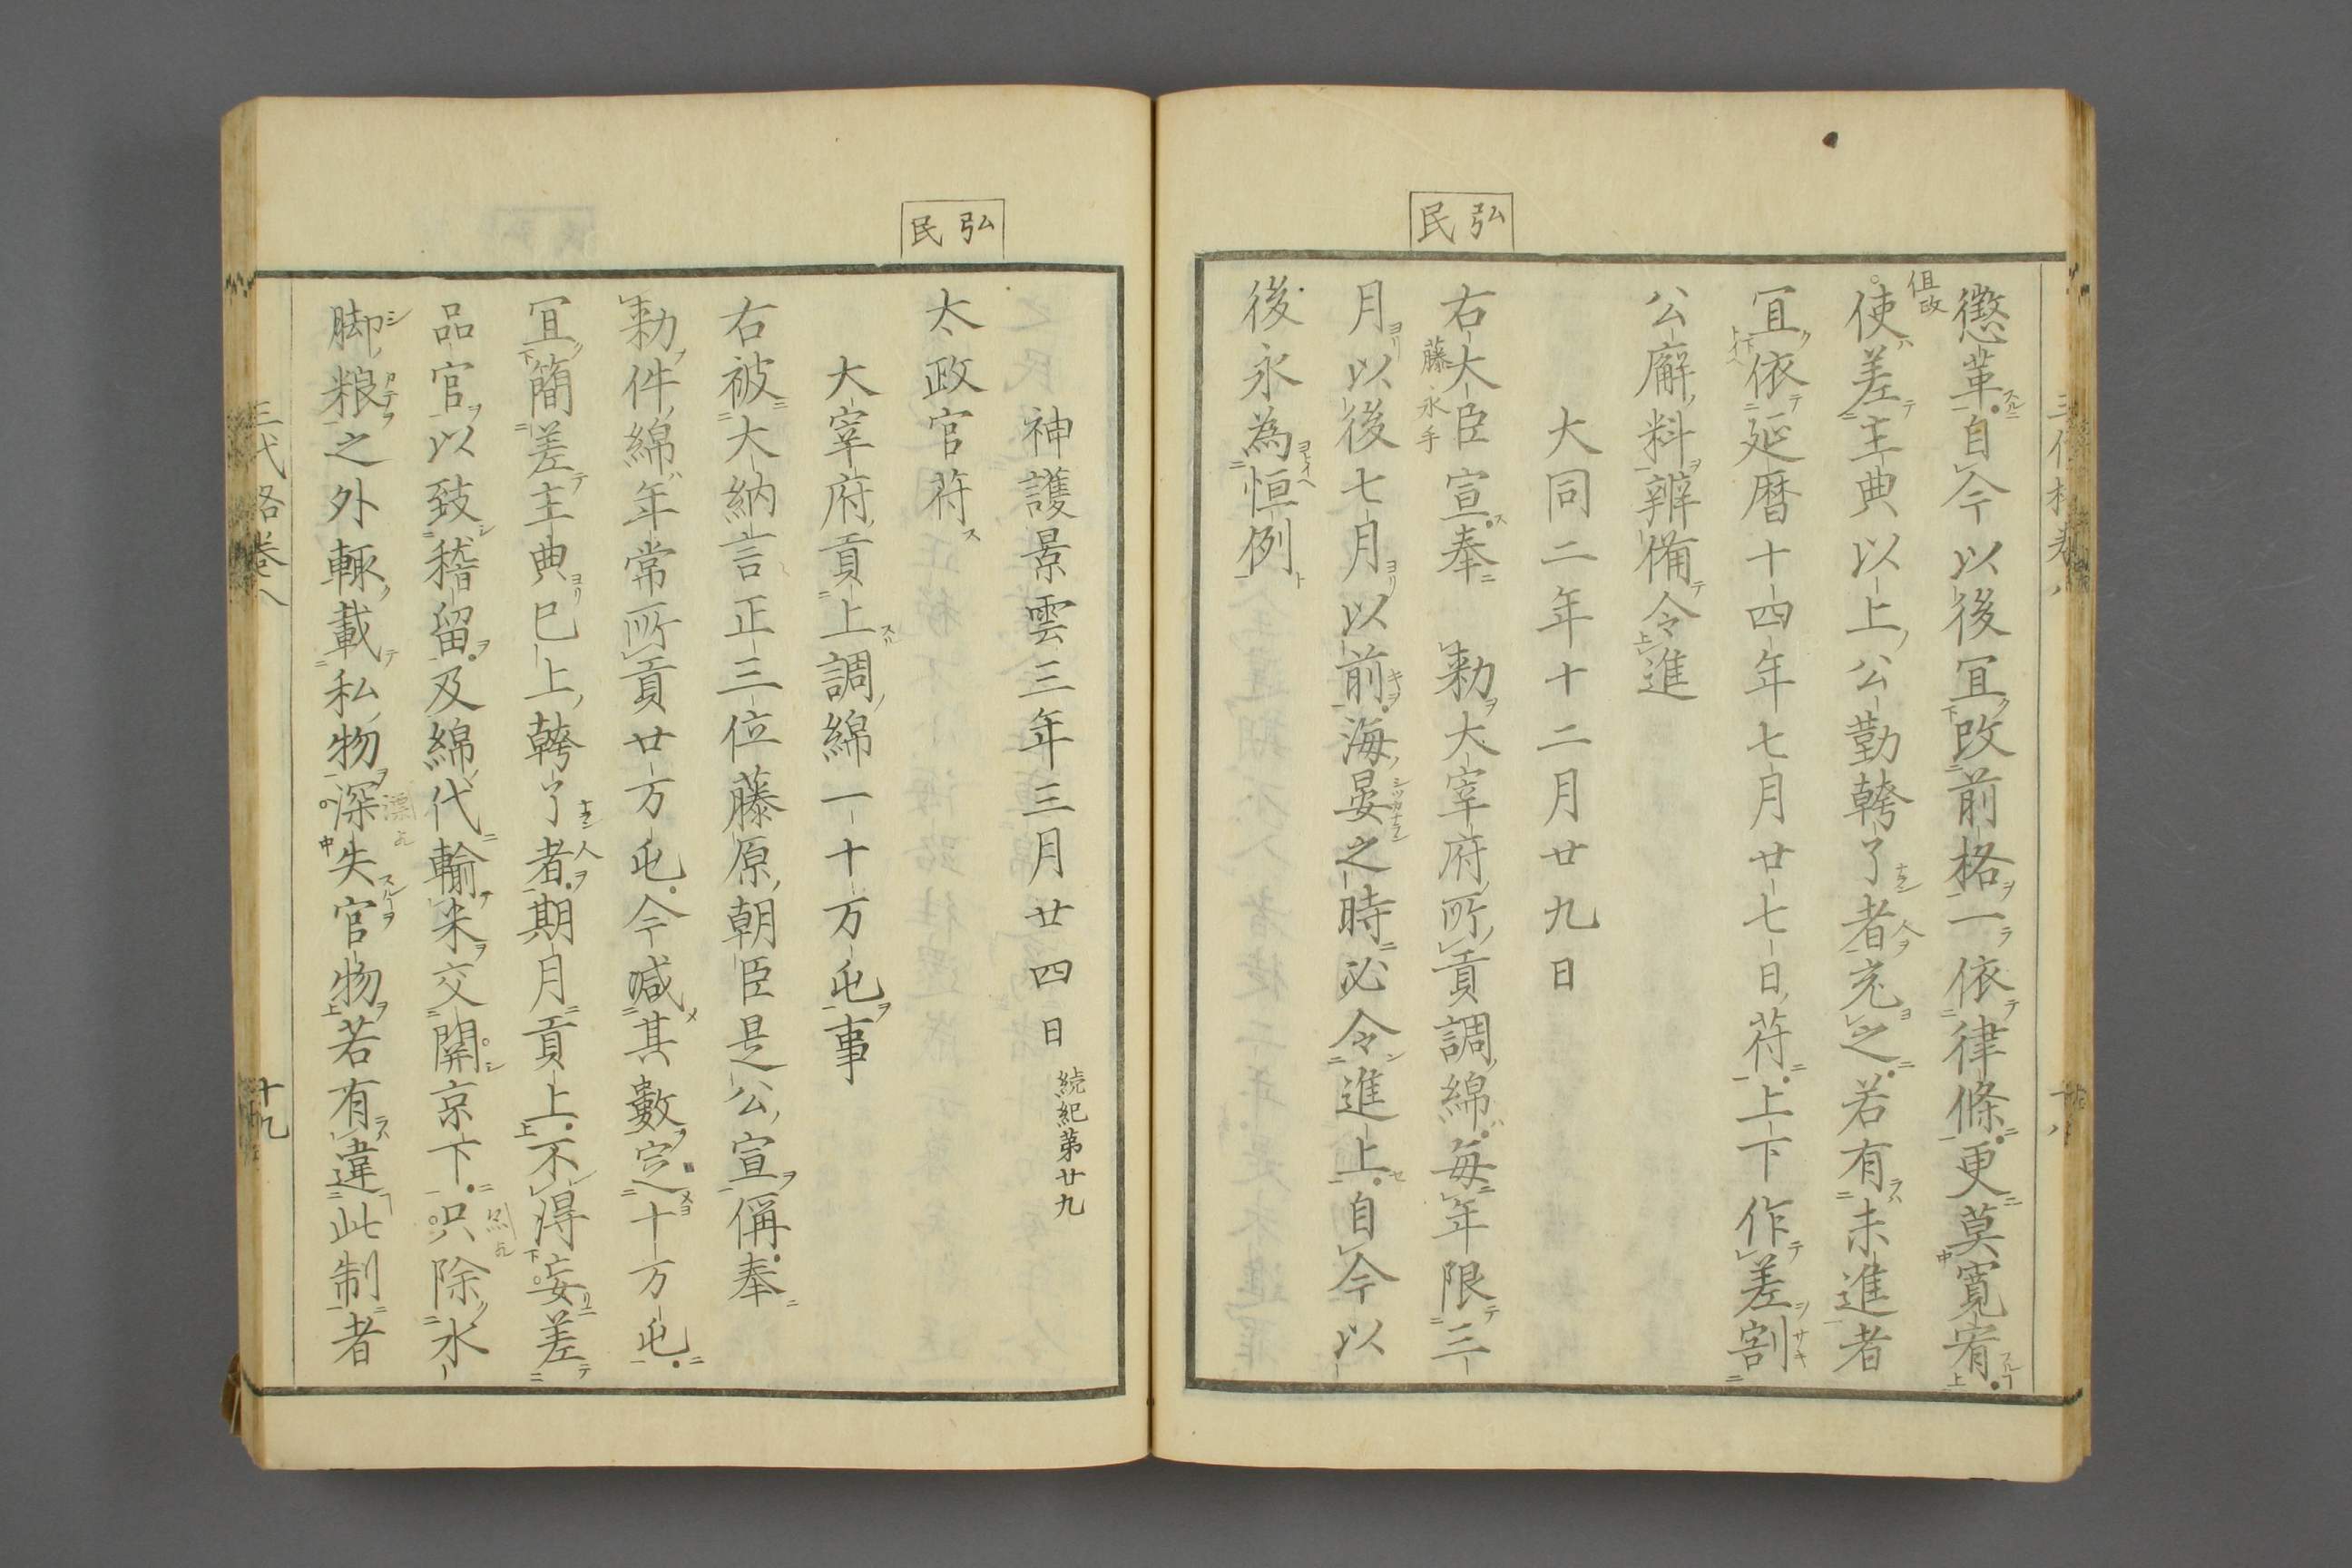 弘民
懲革自今以後冝改前格一依律條更莫寛宥
使差主典以上公勤幹了者充之若有未進者
冝依延暦十四年七月廿七日符上下作差割
公廨料辨備令進
大同二年十二月廿九日
右大臣宣奉　勅大宰府所貢調綿毎年限三
藤永手
月以後七月以前海晏之時必令進上自今以
後永為恒例
弘民
神護景雲三年三月廿四日 続紀第廿九
太政官符
大宰府貢上調綿一十万屯事
右被大納言正三位藤原朝臣是公宣偁奉
勅件綿年常所貢廿万屯今減其數定十万屯
冝簡差主典已上幹了者期月貢上不得妄差
品官以致稽留及綿代輸米交開京下只除水
脚粮之外輙載私物深失官物若有違此制者
三代格巻八
十九